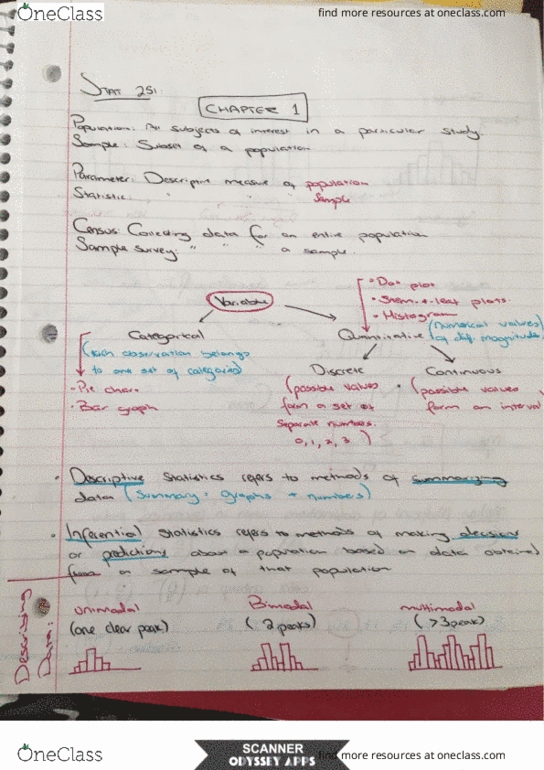 OneClass
find more resources at oneclass.com
STAT 251
CHAPTER 1
Population: All subjects of interest in a particular study.
Sample: Subset of a population
Parameter: Descriptive measure of population
Statistic: " " " sample
Census: Collecting data for an entire population
Sample survey: " " " a sample.
Variable
• Dot plot
• Stem-&-leaf plots.
• Histogram
Categorical
Quantitative (numerical values of diff. magnitude)
(each observation belongs
to one set of categories)
• Pie chart.
• Bar graph
Discrete
(possible values
form a set of
separate numbers.
0, 1, 2, 3 )
Continuous
(possible values
form an interval
• Descriptive statistics refers to methods of summarizing
data (summary: graphs + numbers)
• Inferential statistics refers to methods of making decisions
or predictions about a population based on data obtained
from a sample of that population
Describing
Data:
Unimodal
(one clear peak)
Bimodal
(2 peaks)
multimodal
(>3 peaks)
OneClass
SCANNER
ODYSSEY APPS
find more resources at oneclass.com